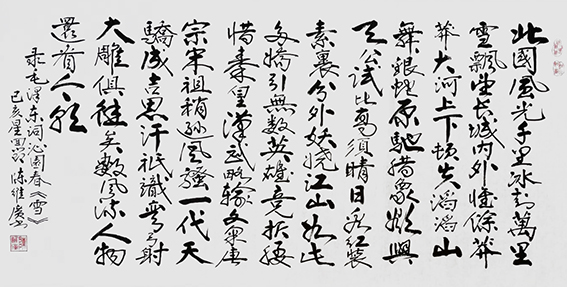 北國風光千里冰封萬里
雪飄望长城内外惟餘莽
莽大河上下頓失滔滔山
舞銀蛇原馳蜡象欲與
天公試比高須晴日看红装
素裹分外妖娆江山如此
多嬌引無數英雄竞折腰
惜秦皇漢武略输文采唐
宗宋祖稍逊風騷一代天
驕成吉思汗祇識彎弓射
大雕俱往矣數風流人物
還看今朝
录毛泽东词沁園春《雪》
己亥星回节 陈维